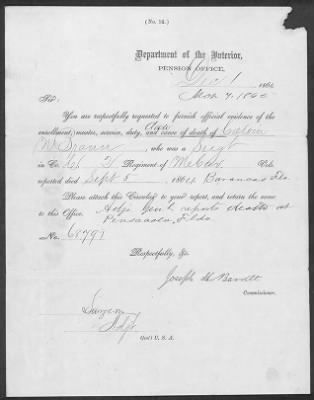 (No. 14.)
Department of the Interior,
PENSION OFFICE,
Dec 1 186
Nov 7, 1865
Sir:
You are respectfully requested to furnish official evidence of the
enrollment, muster, service, duty, and cause of death of Calvin
W , who was a Sergt
in Co. Regiment of Me Vols.
reported died Sept 8 1864 Barancas Fla
Please attach this Circular to your report, and return the same
to this Office. Adjt Genl reports death at
Pensacola, Flda
No. 68797
Respectfully, &c.
Joseph H Barrett
Commissioner.
Surgeon
Adjt
Gen'l U. S. A.